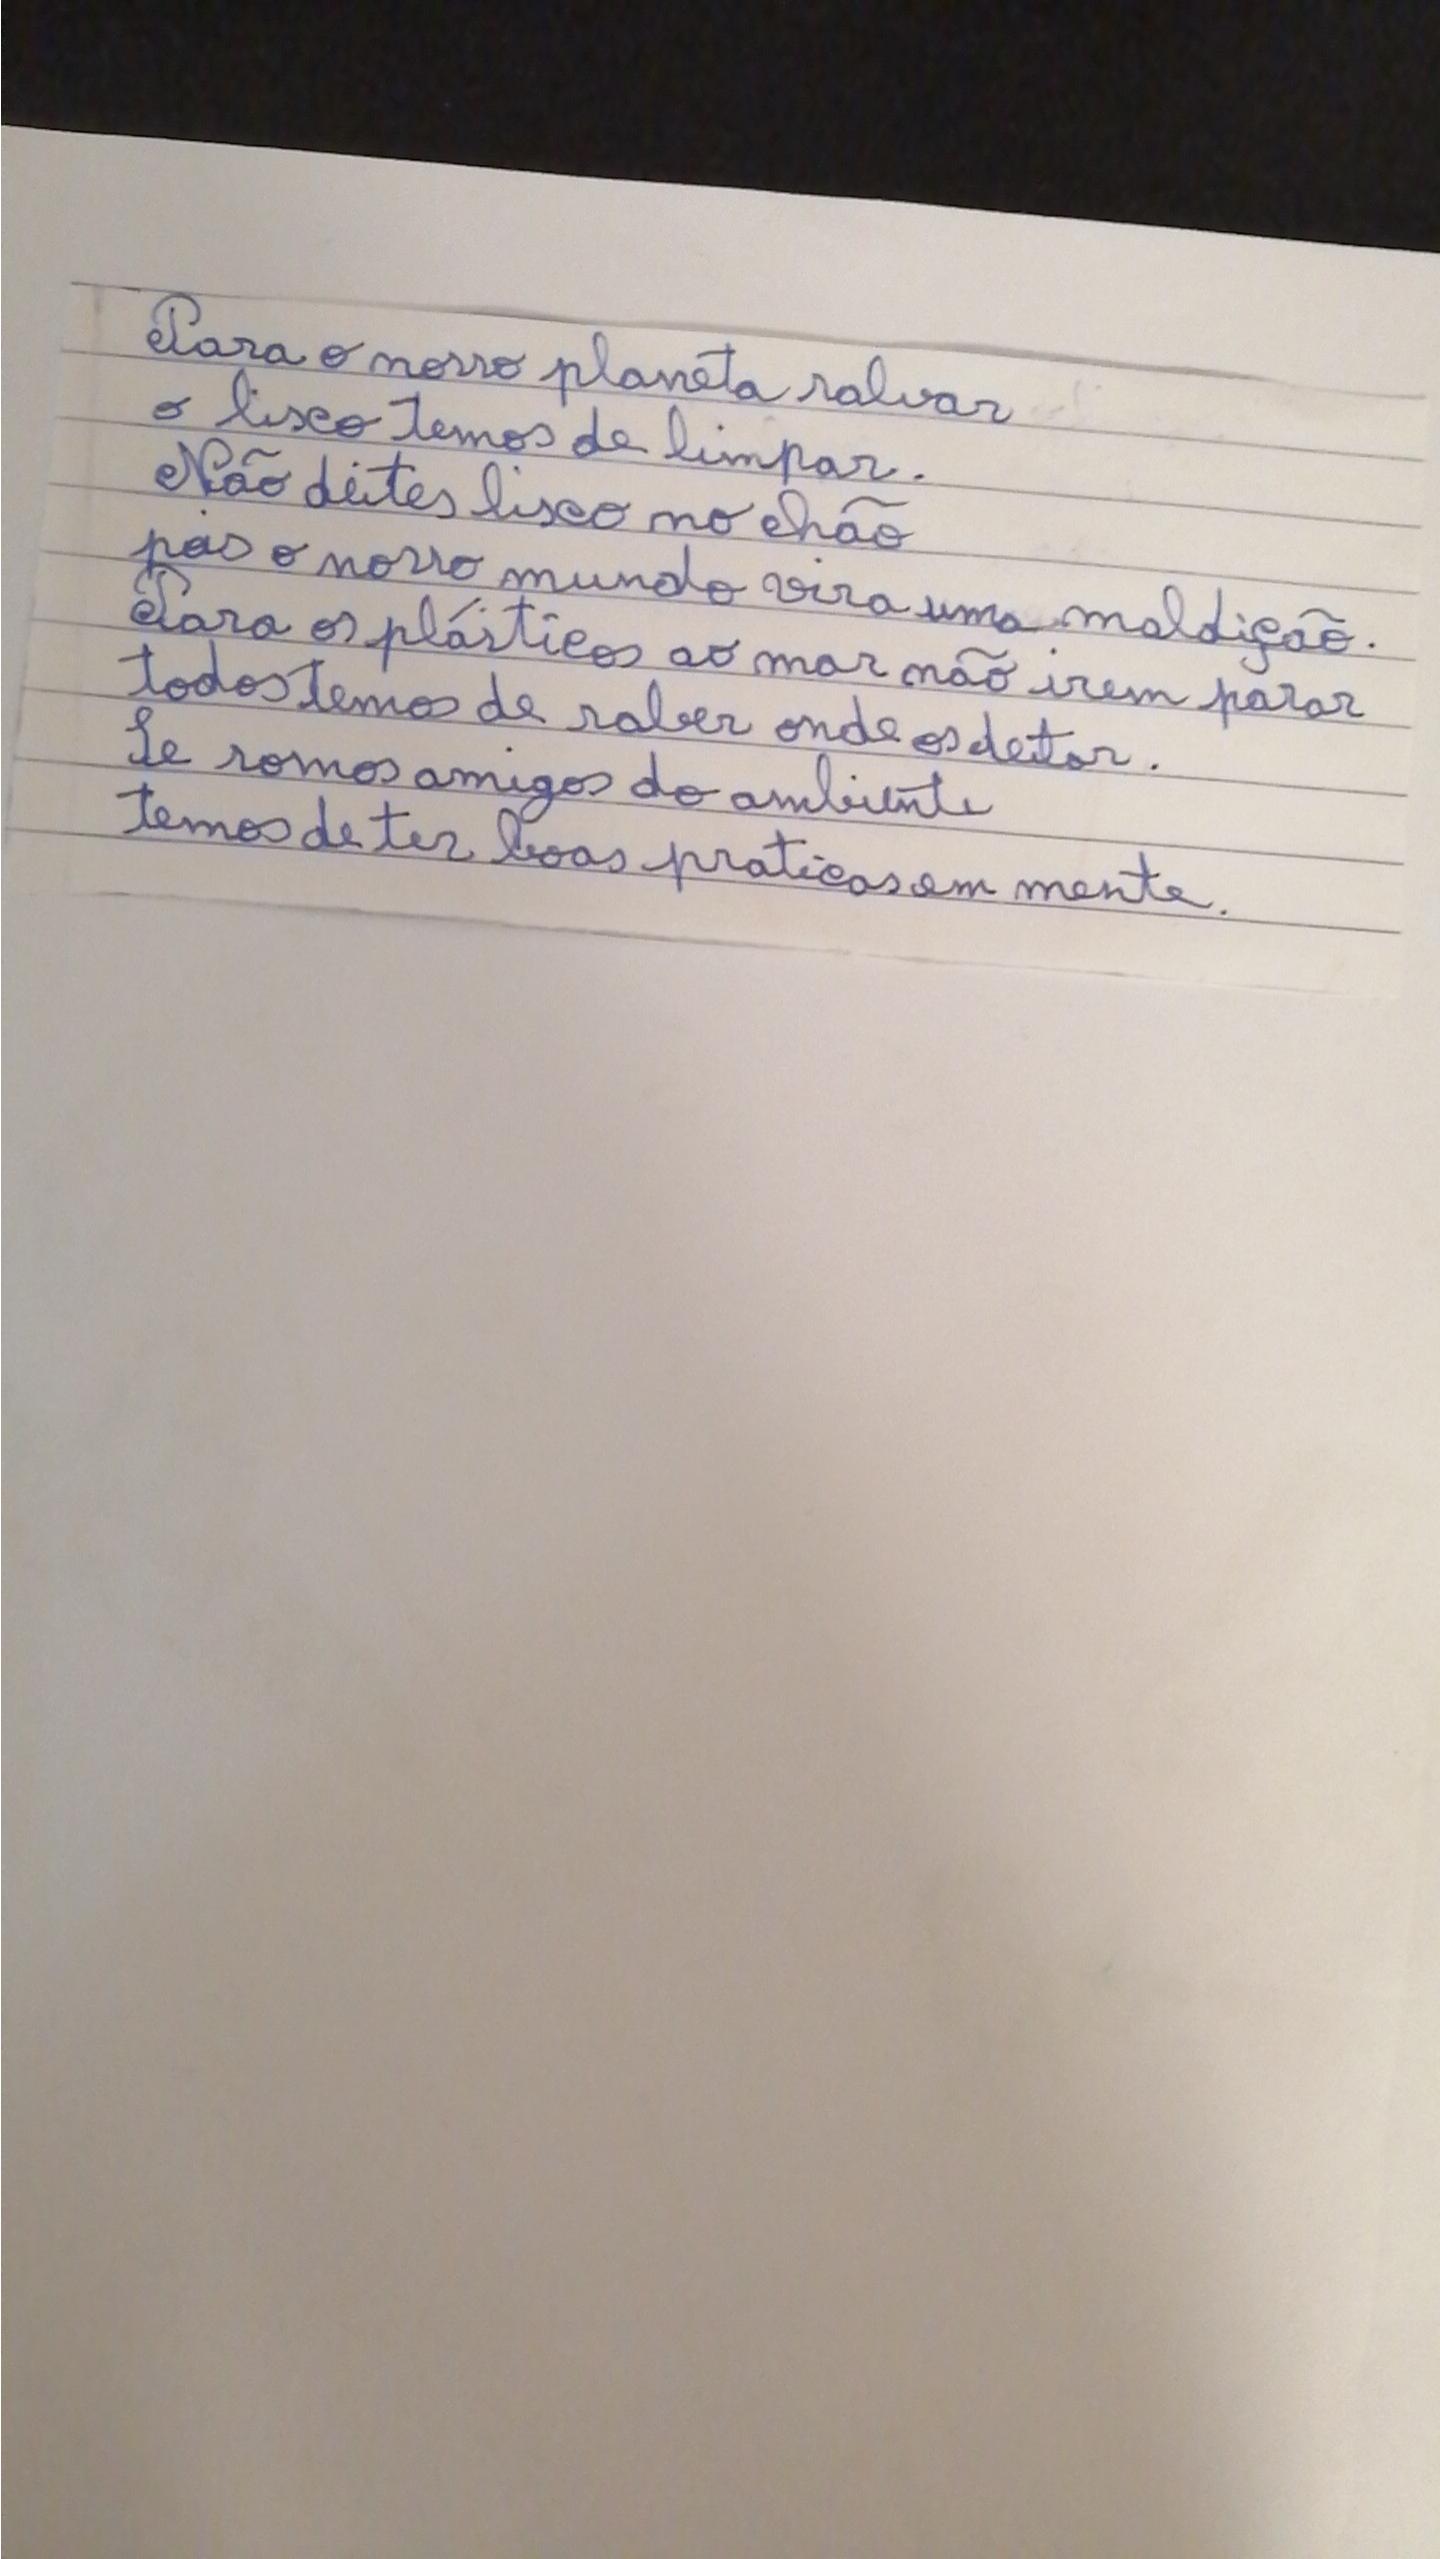 Para o nosso planeta salvar
o lixo temos de limpar.
Não deites lixo no chão
pois o nosso mundo vira uma maldição.
Para os plásticos ao mar não irem parar
todos temos de saber onde os deitar.
Se somos amigos do ambiente
temos de ter boas praticas em mente.